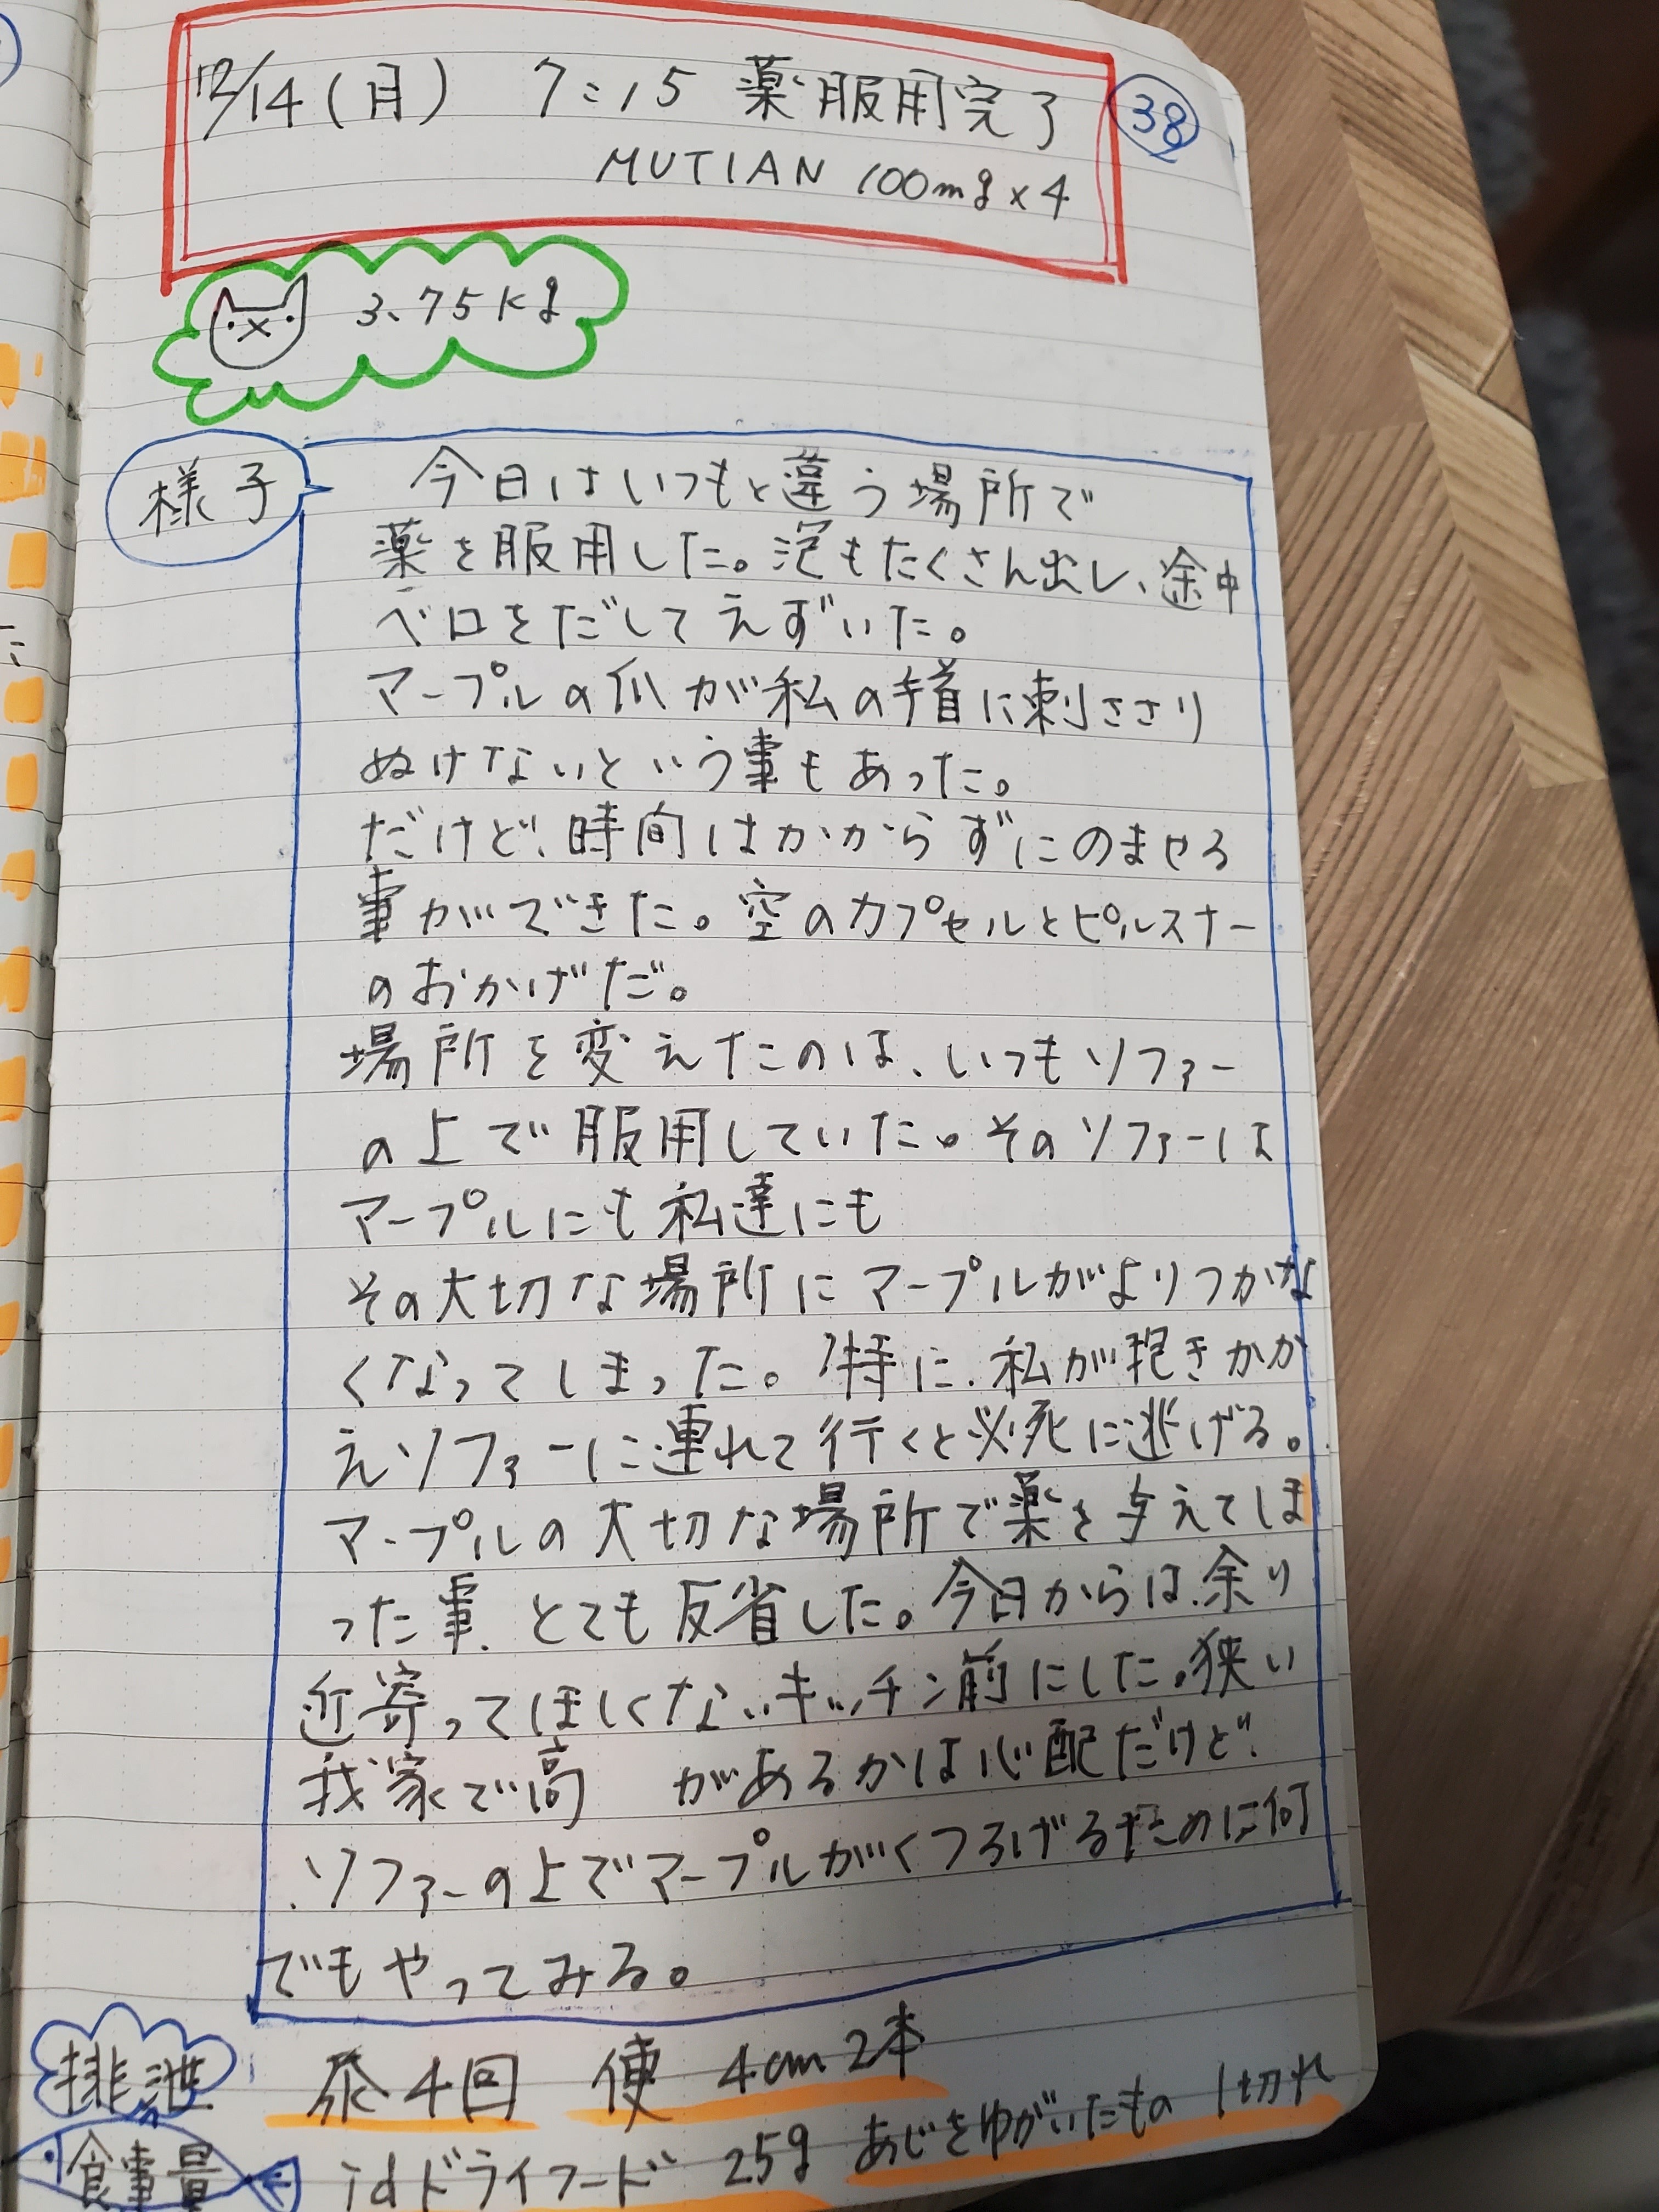 12/14(月) 7:15 薬服用完了
㊳
MUTIAN 100mg×4
3.75kg
様子
今日はいつもと違う場所で
薬を服用した。泡もたくさん出し、途中
ベロをだしてえずいた。
マープルの爪が私の手首に刺ささり
ぬけないという事もあった。
だけど、時間はかからずにのませる
事ができた。空のカプセルとピルスナー
のおかげだ。
場所を変えたのは、いつもソファー
の上で服用していた。そのソファーは
マープルにも私達にも
その大切な場所にマープルがよりつかな
くなってしまった。特に、私が抱きかか
えソファーに連れて行くと必死に逃げる。
マープルの大切な場所で薬を与えてしま
った事、とても反省した。今日からは、余り
近寄ってほしくないキッチン前にした。狭い
我家で高 があるかは心配だけど、
ソファーの上でマープルがくつろげるために何
でもやってみる。
排泄 尿4回 便 4cm2本
食事量 idドライフード 25g あじをゆがいたもの 1切れ